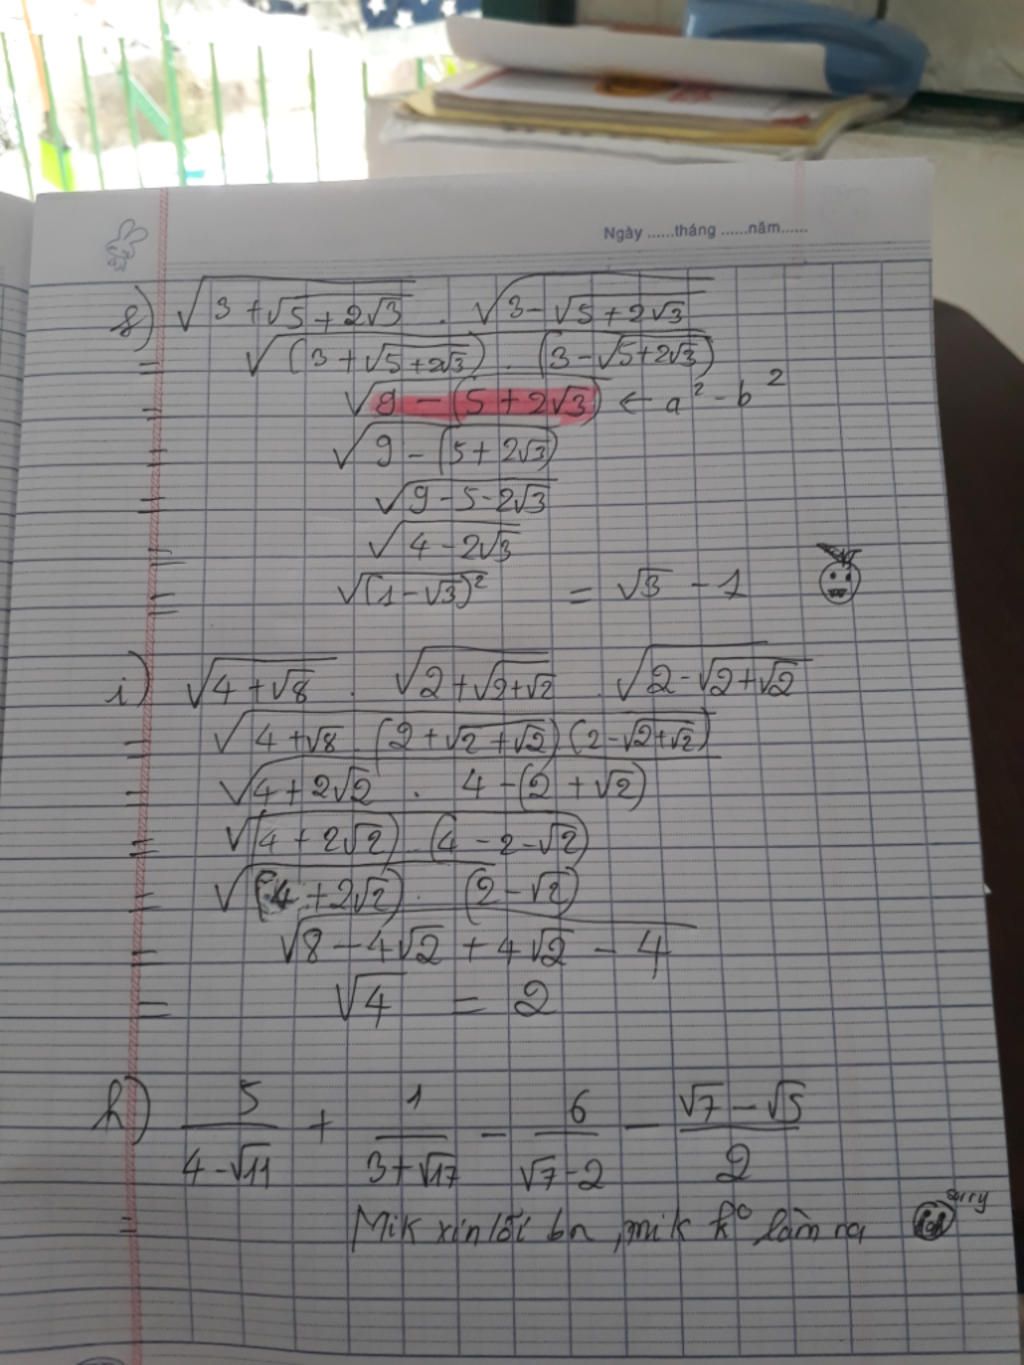 Ngày ......tháng ......năm......
g) √(3 + √(5 + 2√3)) . √(3 - √(5 + 2√3))
= √((3 + √(5 + 2√3)) . (3 - √(5 + 2√3)))
= √(9 - (5 + 2√3)) ← a² - b²
= √(9 - (5 + 2√3))
= √(9 - 5 - 2√3)
= √(4 - 2√3)
= √((1 - √3)²) = √3 - 1
i) √(4 + √8) . √(2 + √(2 + √2)) . √(2 - √(2 + √2))
= √(4 + √8 . (2 + √(2 + √2)) . (2 - √(2 + √2)))
= √(4 + 2√2 . 4 - (2 + √2))
= √((4 + 2√2) . (4 - 2 - √2))
= √((4 + 2√2) . (2 - √2))
= √(8 - 4√2 + 4√2 - 4)
= √4 = 2
h) 5/(4 - √11) + 1/(3 + √17) - 6/(√7 - 2) - (√7 - √5)/2
= Mik xin lỗi bn, mik k° làm ra sorry